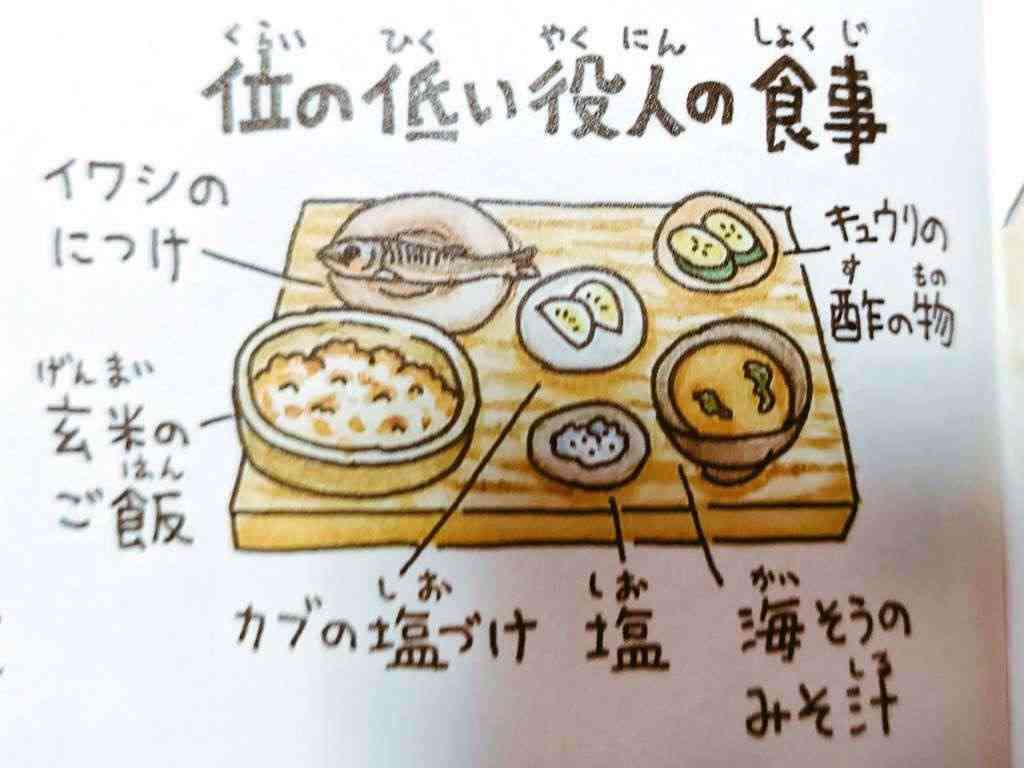 くらい ひく やく にん しょく じ
位の低い役人の食事
イワシの
につけ
キュウリの
す もの
酢の物
げん まい
玄米の
はん
ご飯
しお
カブの塩づけ
しお
塩
かい
海そうの
しる
みそ汁